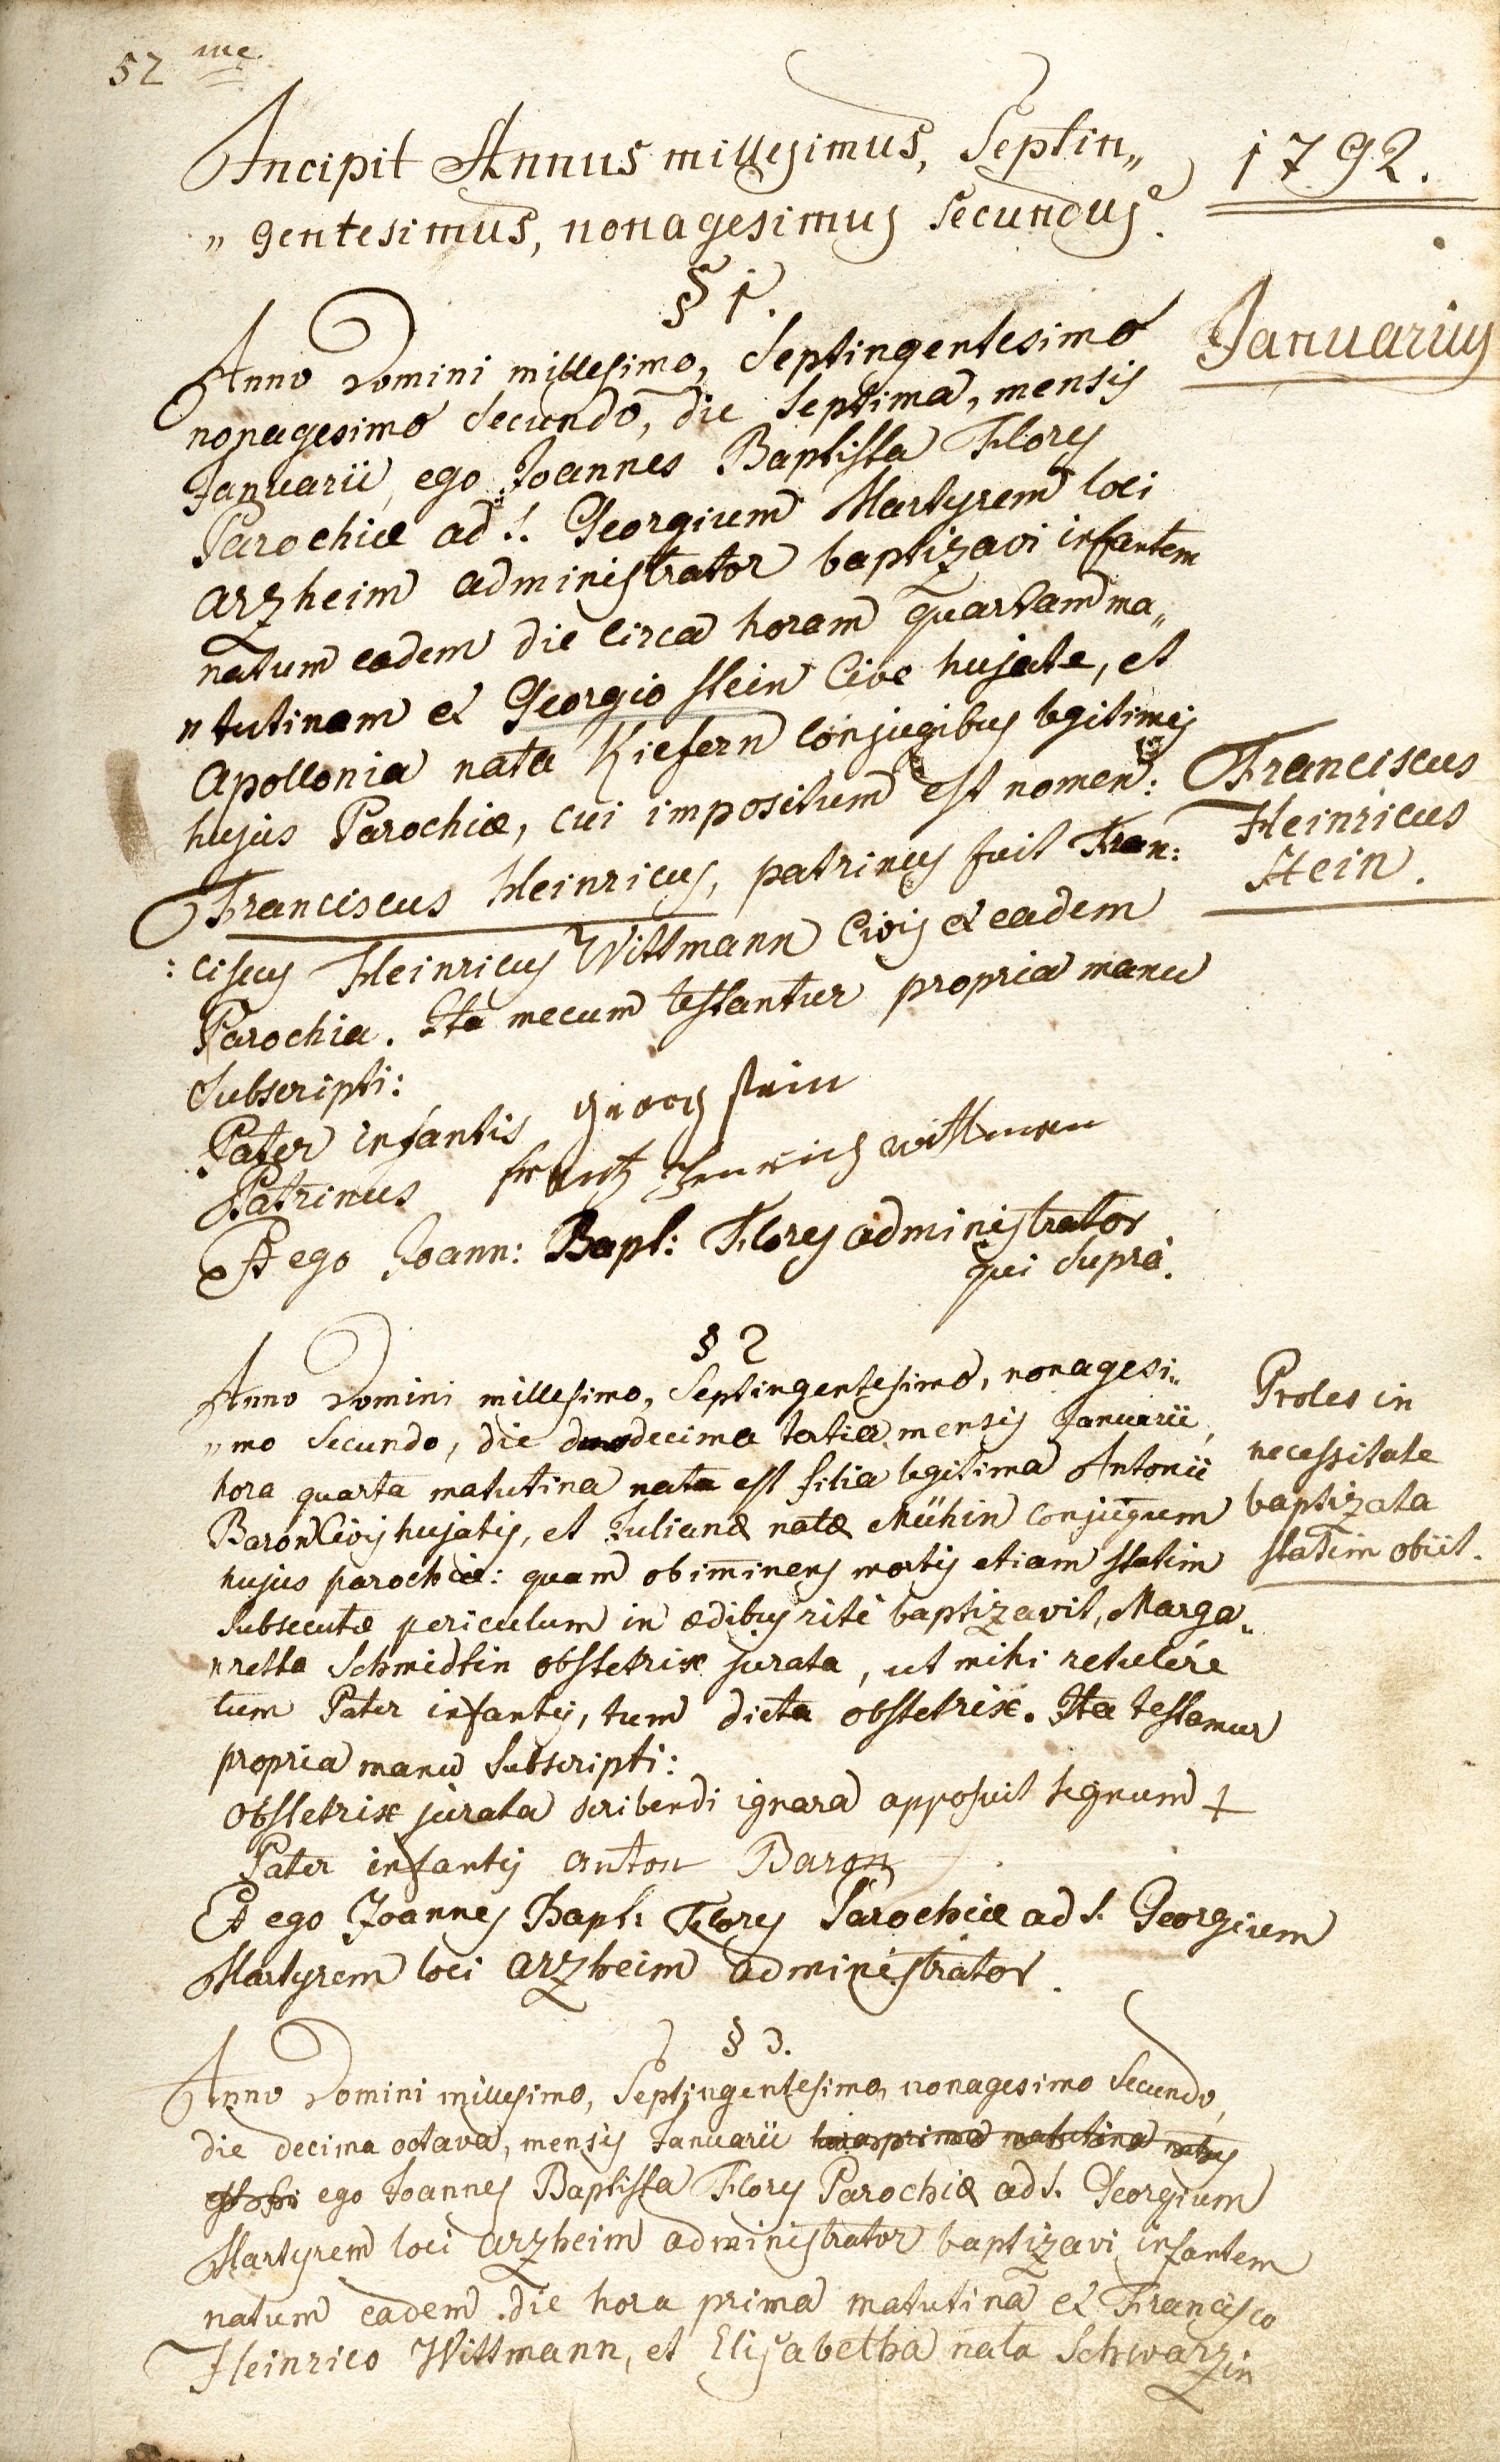 52 me.
Incipit Annus millesimus, Septin„
„gentesimus, nonagesimus secundus.
1792.
§ 1.
Januarius
Anno Domini millesimo, Septingentesimo
nonagesimo Secundo, die Septima, mensis
Januarii, ego Joannes Baptista Flory
Parochiæ ad S. Georgium Martyrem loci
arzheim administrator baptizavi infantem
natum eadem die circa horam quartam ma„
„tutinam ex Georgio Stein Cive hujate, et
Apollonia nata Kiefern Conjugibus legitimis
hujus Parochiæ, cui impositum est nomen:
Franciscus Heinricus, patrinus fuit Fran:
:ciscus Heinricus Wittmann Civis ex eadem
Parochia. Ita mecum testantur propria manu
Subscripti:
Franciscus
Heinricus
Stein.
Pater infantis Georg Stein
Patrinus Frantz Henrich Wittmann
Et ego Joann: Bapt: Flory administrator
qui Supra.
§ 2
Anno Domini millesimo, Septingentesimo, nonagesi„
„mo Secundo, die decima tertia mensis Januarii,
hora quarta matutina nata est filia legitima Antonii
Baron Civis hujatis, et Julianæ natæ Mühin Conjugum
hujus parochiæ: quam ob iminens mortis etiam statim
Subsecutæ periculum in ædibus rité baptizavit, Marga„
„retta Schmidtin obstetrix jurata, ut mihi retulére
tum Pater infantis, tum dicta obstetrix. Ita testamur
propria manu Subscripti:
Proles in
necessitate
baptizata
statim obiit.
Obstetrix jurata scribendi ignara apposuit signum +
Pater infantis Anton Baron
Et ego Joannes Bapt: Flory Parochiæ ad S. Georgium
Martyrem loci arzheim administrator.
§ 3.
Anno Domini millesimo, Septingentesimo, nonagesimo Secundo,
die decima octava, mensis Januarii hora prima matutina natus
est ego Joannes Baptista Flory Parochiæ ad S. Georgium
Martyrem loci arzheim administrator baptizavi infantem
natum eadem die hora prima matutina ex Francisco
Heinrico Wittmann, et Elisabetha nata Schwarzin